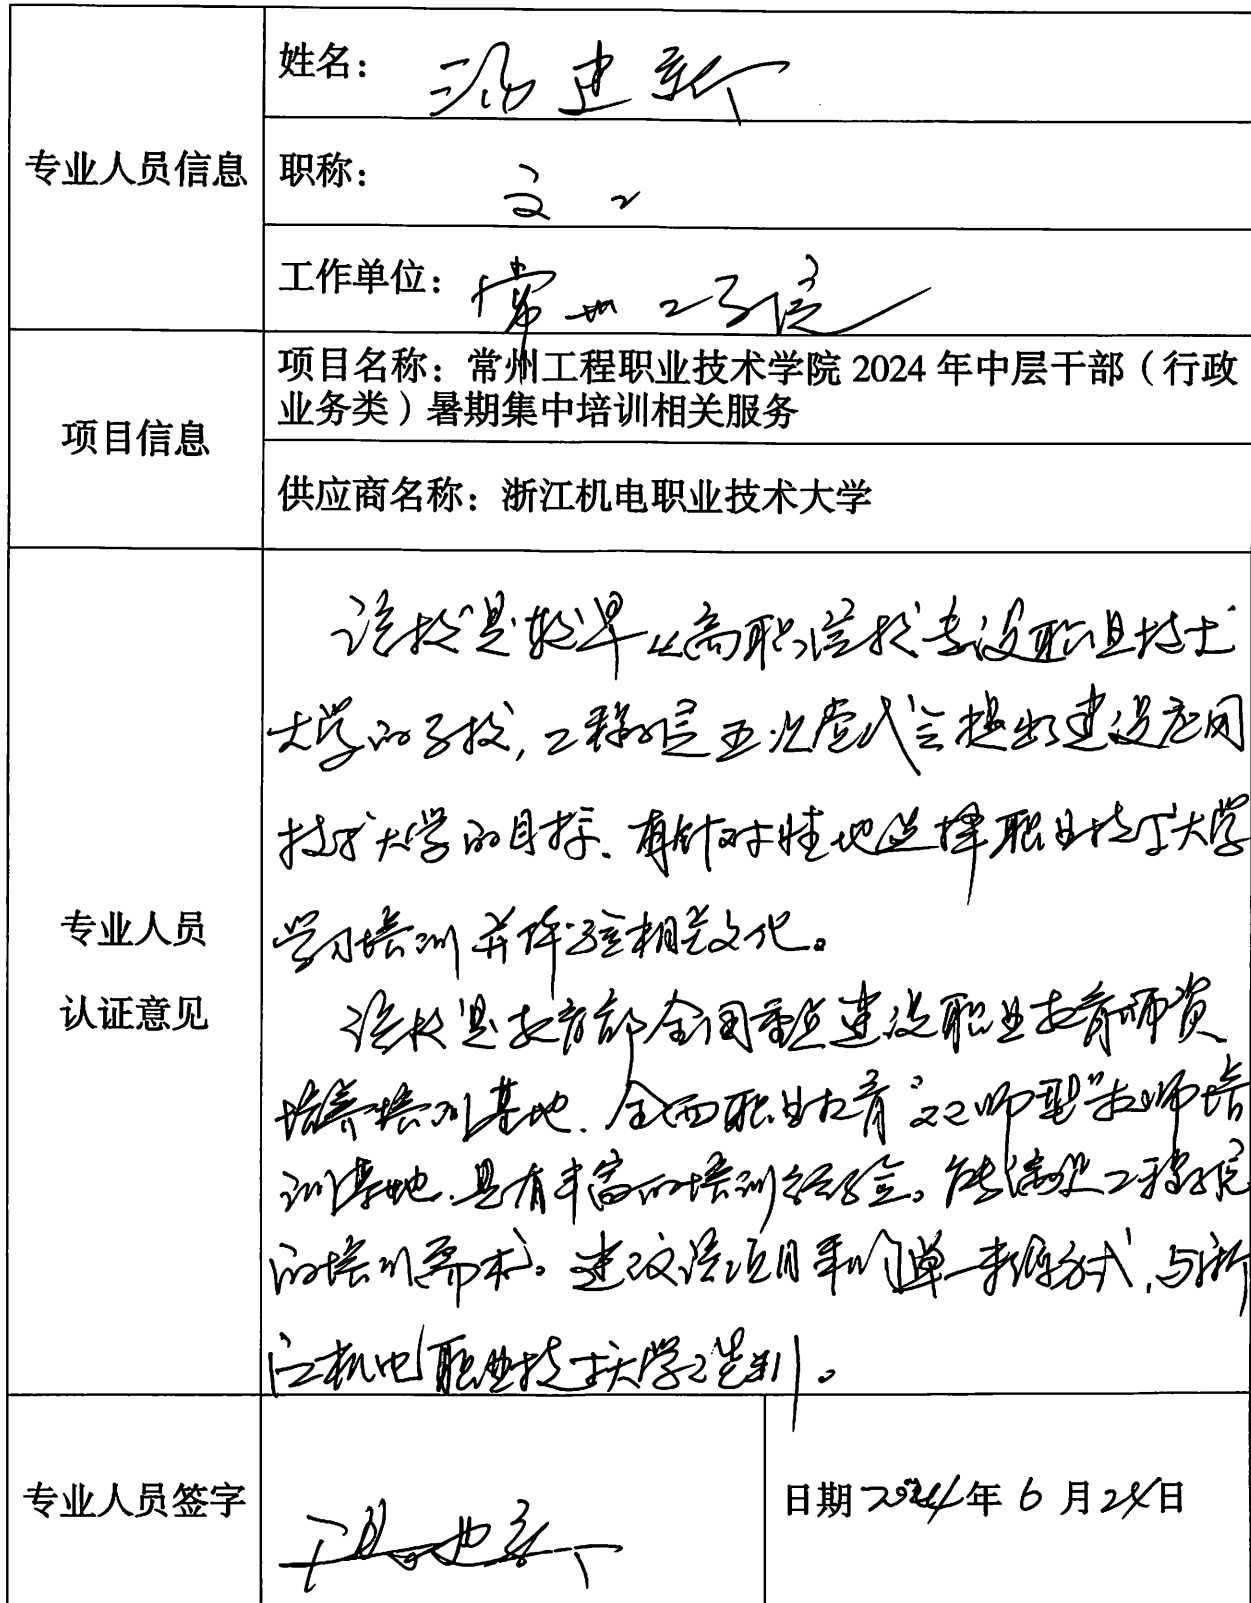 姓名： 汤建新
专业人员信息
职称：
工作单位： 常州工学院
项目名称：常州工程职业技术学院 2024 年中层干部（行政
业务类）暑期集中培训相关服务
项目信息
供应商名称：浙江机电职业技术大学
该校是较早从高职院校建设职业技术
大学的学校，工程学院五次党代会提出建设应用
技术大学的目标、有针对性地选择职业技术大学
学习培训并体验相关文化。
专业人员
认证意见
该校是教育部全国重点建设职业教育师资
培养培训基地、全国职业教育“双师型”教师培
训基地、具有丰富的培训经验。能满足工程学院
的培训需求。建议该项目采取单一来源方式，与浙
江机电职业技术大学谈判。
专业人员签字 汤建新
日期 2024 年 6 月 24 日